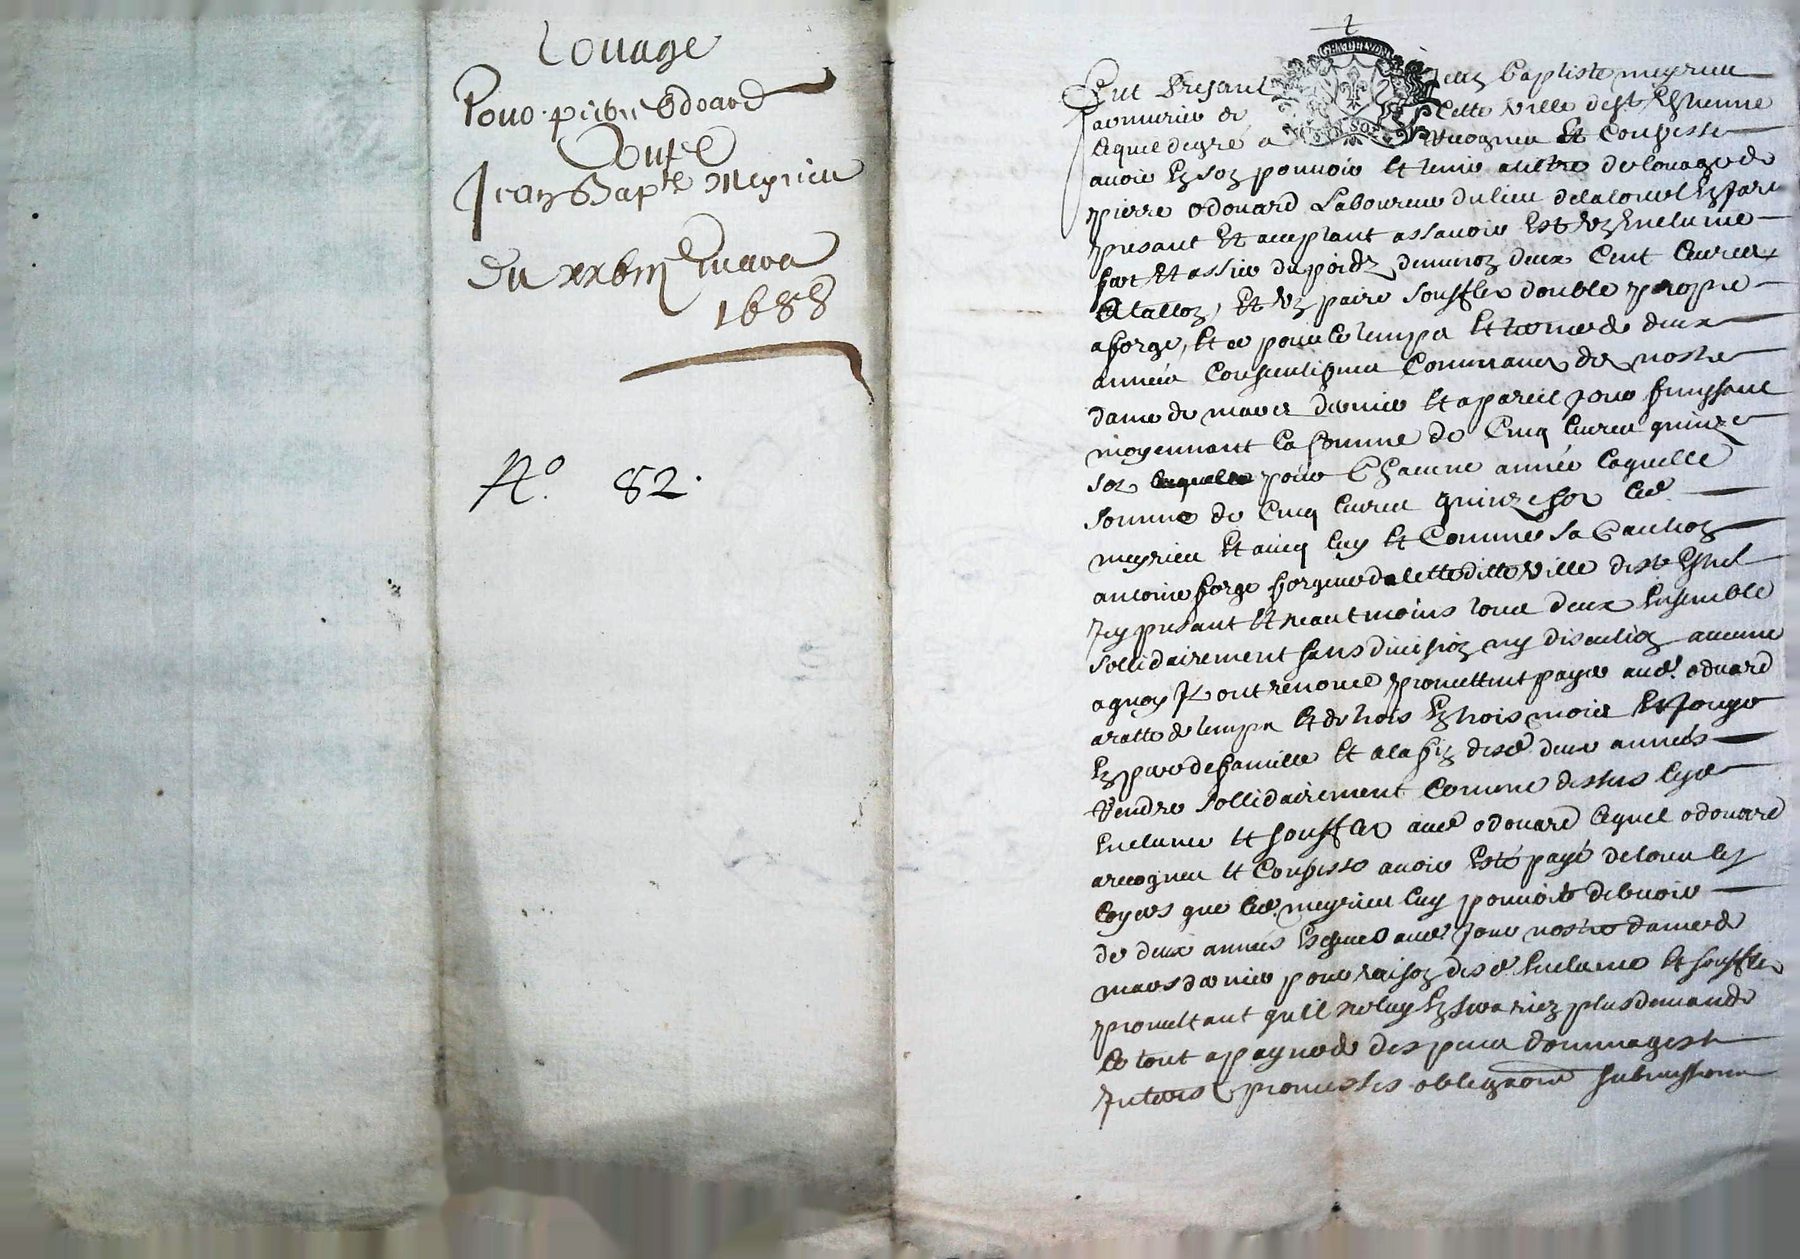 Louage
Pour pierre Odoard
Contre
Jean Bapte Meyrieu
Du xxbme mars
1688
No. 82.
GEN DE LYON
Fut Présant Jean Baptiste meyrieu
armurier de Cette Ville de st Estienne
lequel de gré a Recogneu Et Confesse
avoir En son pouvoir Et tenir a tiltre de louage de
pierre odouard Laboureur du lieu de la
presant Et acceptant assavoir Est Un Enclume
fort Et assier du poidz denviron deux Cent livres
Et Un paire soufflex double propre
a forge, Et ce pour le temps Et terme de deux
années Consecutifves Commancer de nostre
dame de mars dernier Et a pareil jour finissant
moyennant la somme de Cinq livres quinze
sol pour Chacune année laquelle
somme de Cinq livres quinze sol led.
meyrieu Et avec luy Et Comme sa Caution
antoine forge forgeur de Cette ditte Ville de st Estne
Icy presant Et neantmoins tous deux Ensemble
sollidairement sans division ny discution aucune
a quoy Ilz ont renoncé promettent payer aud. odouard
a ratte de temps Et de trois En trois mois Et jouyr
En pere de famille Et a la fin desd deux années
Rendre sollidairement Comme dessus lesd
Enclume Et soufflex aud odouard lequel odouard
a recogneu Et Confesse avoir Esté payé de tous les
loyers que led. meyrieu luy pouvoit debvoir
de deux années Escheues aud. jour nostre dame de
mars dernier pour raison desd Enclume Et soufflex
promettant qu'Il ne luy En sera rien plus demandé
le tout a payne de despens dommages Et
Interes promesses obligaons submissions